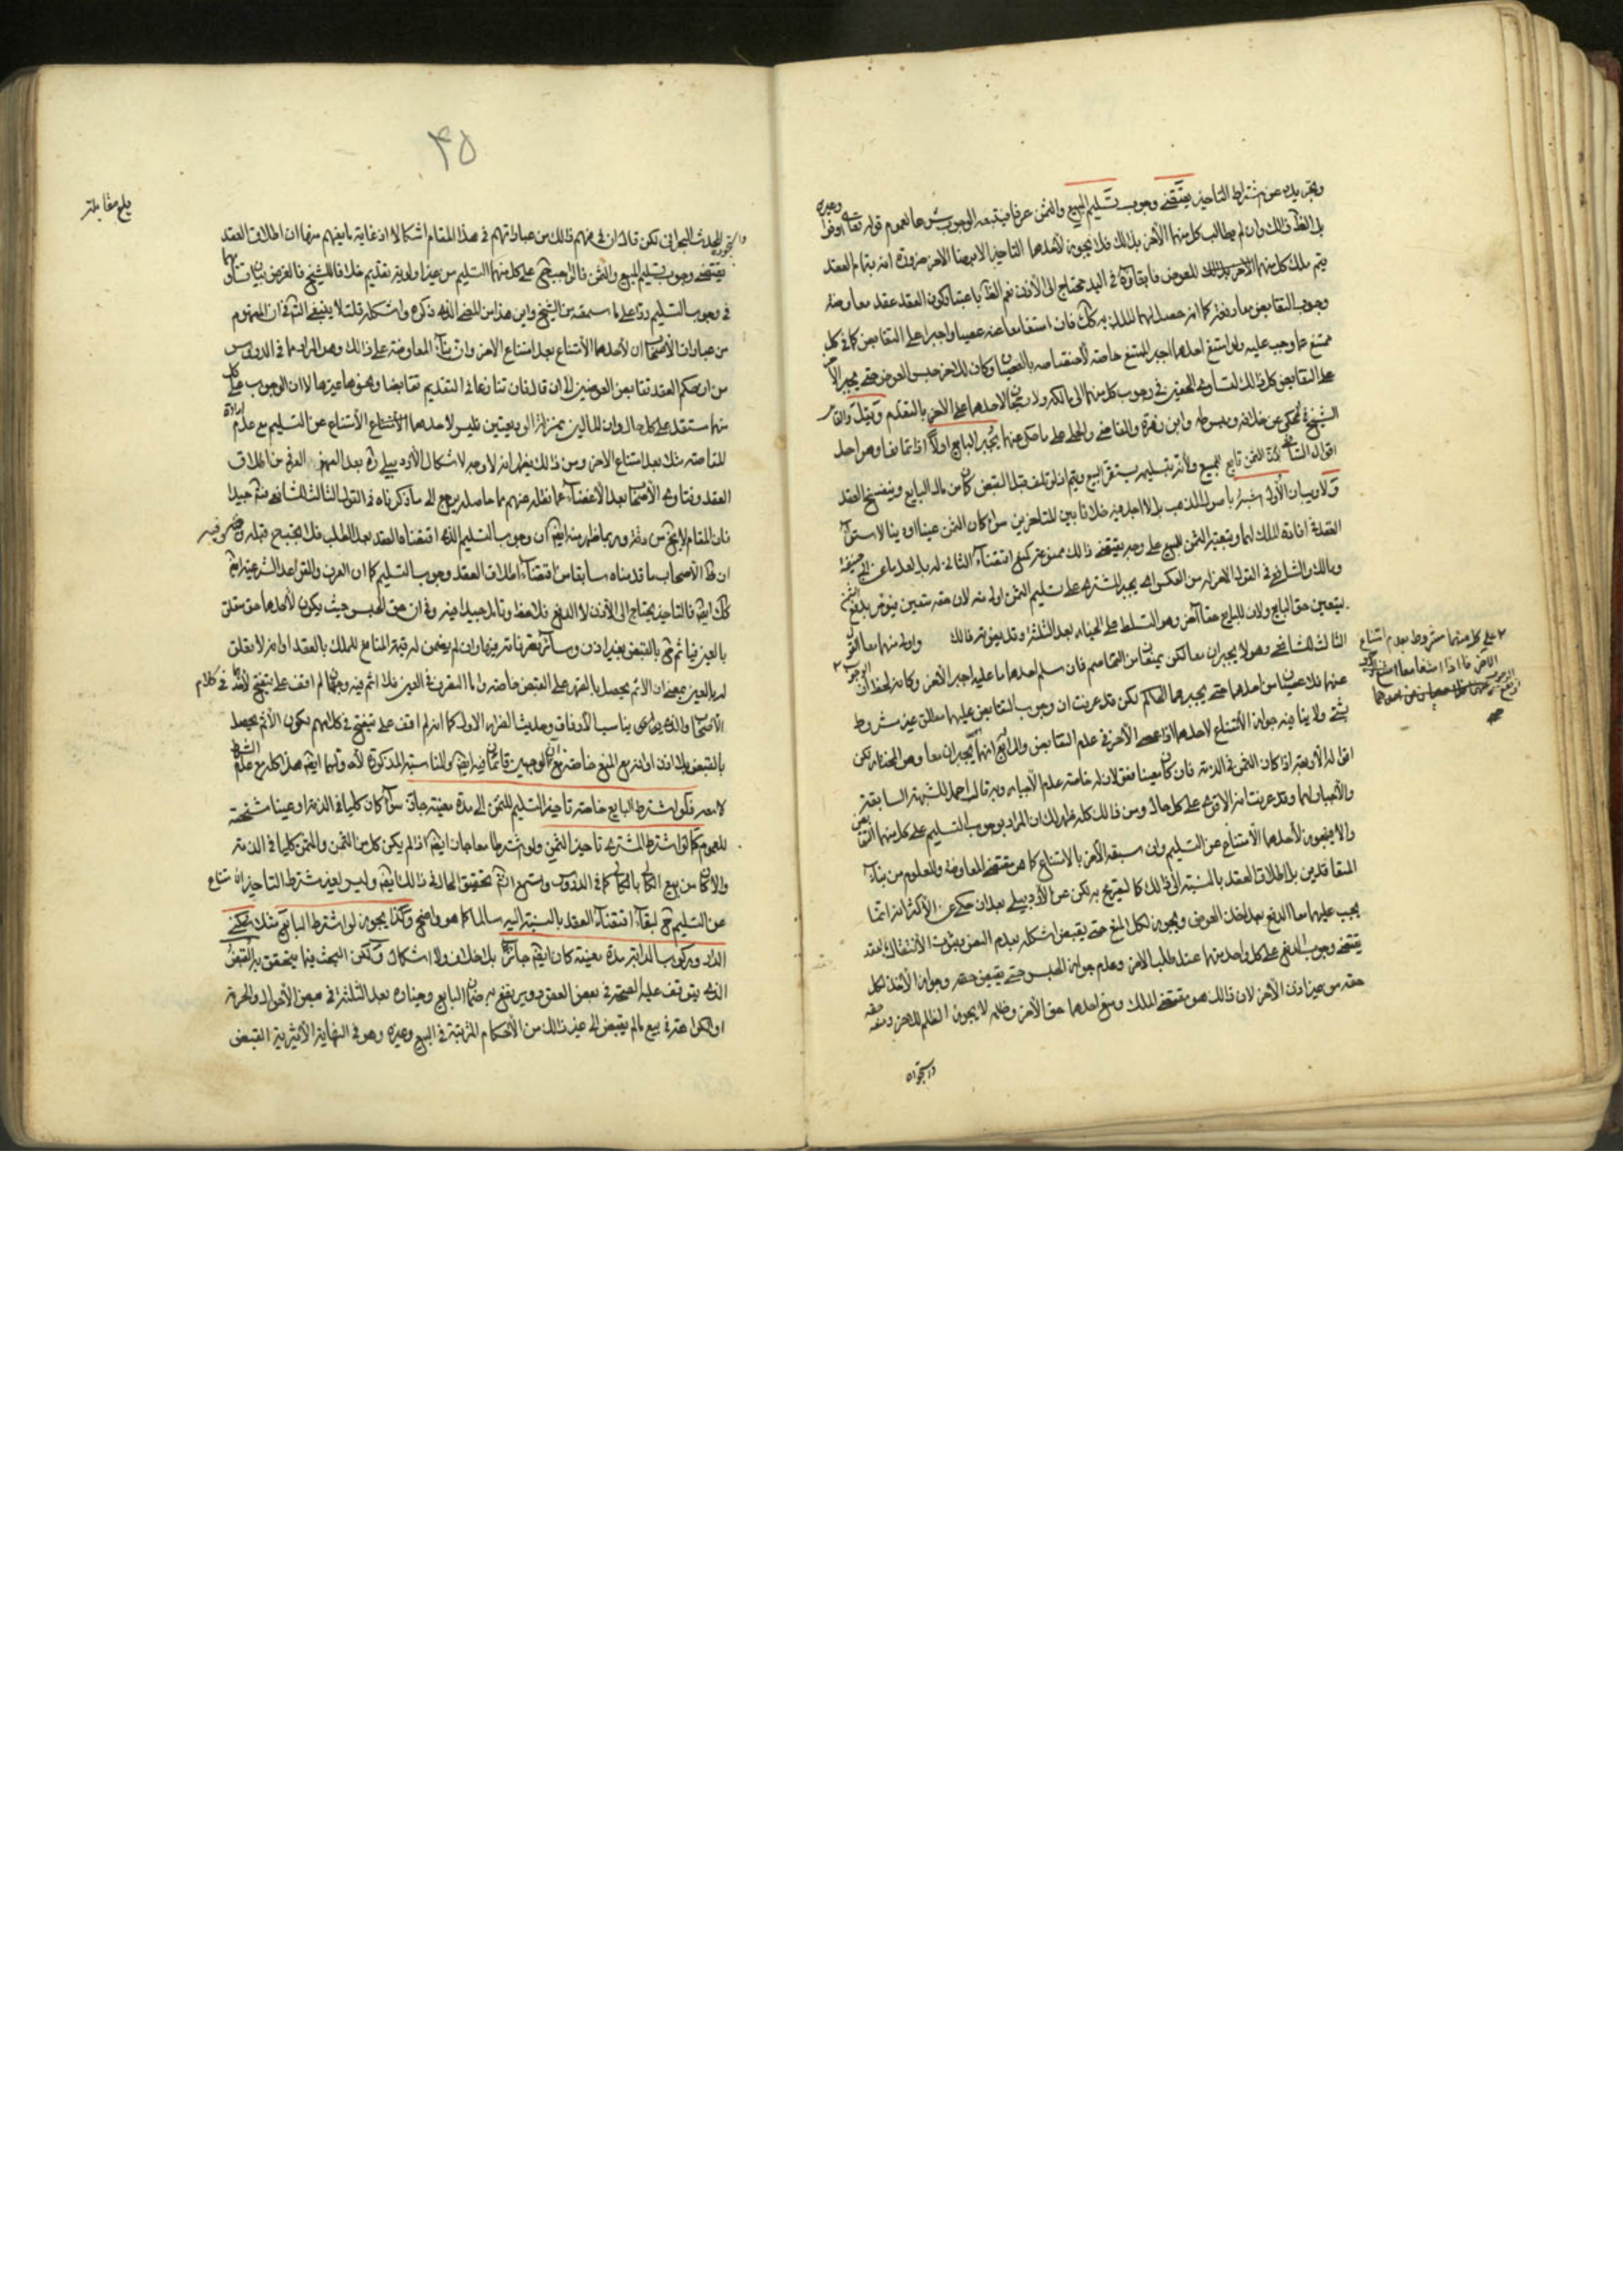 وتجريده عن شرط التاخير يقتضي وجوب تسليم المبيع والثمن عرفا فيتبعه الوجوب شرعا لعموم قوله تعالى اوفوا وغيره
بل الظ ذلك وان لم يطالب كل منهما الآخر بذلك فلا يجوز لأحدهما التاخير الا برضا الآخر ضرورة انه بتمام العقد
يتم ملك كل منهما للعوض فابقاؤه في اليد محتاج الى الأذن نعم الظ باعتبار كون العقد عقد معاوضة
وجوب التقابض معا دفعة كما انه حصل لهما الملك به كك فان امتنعا معا عصيا واجبرا على التقابض كما في كل
ممتنع عما وجب عليه ولو امتنع احدهما اجبر الممتنع خاصة لأختصاصه بالعصيان وكان للاخر حبس العوض حتى يجبر الآخر
على التقابض كل ذلك لتساوي الحقين في وجوب كل منهما الى مالكه ولا رجحان لاحدهما على الآخر بالتقدم وقيل والقائل
الشيخ في المحكي عن خلافه ومبسوطه وابن زهرة والقاضي والحلي على ما حكي عنهما يجبر البايع اولا اذا تمانعا وهو احد
اقوال الشافعي لأن الثمن تابع للمبيع ولأن بتسليمه يستقر البيع ويتم اذ لو تلف قبل القبض كان من مال البايع وينفسخ العقد
ولا ريب ان الأول اشبه باصول المذهب بل لا اجد فيه خلافا بين المتاخرين سواء كان الثمن عينا او دينا لاستواء
العقد في افادة الملك لهما وتبعية الثمن للمبيع على وجه يقتضي ذلك ممنوعة كمنع اقتضاء الثاني له بل لعل ما عن ابي حنيفة
ومالك والشافعي في القول الاخر له من العكس اي يجبر المشتري على تسليم الثمن اولى منه لان حقه متعين فيؤمر بدفع الثمن
ليتعين حق البايع ولان للبايع حقا آخر وهو التسلط على الخيار بعد الثلثة وقد يعرض ذلك واولى منهما معا القول
الثالث للشافعي وهو لا يجبران معا لكن يمنعان من التخاصم فان سلم احدهما ما عليه اجبر الآخر وكانه لحظ ان الوجوب
على كل منهما مشروط بعدم امتناع
الآخر فاذا امتنعا معا
عنهما فلا عصيان من احدهما حتى يجبرهما الحاكم لكن قد عرفت ان وجوب التقابض عليهما مطلق غير مشروط
بشئ ولا ينافيه جواز الأمتناع لاحدهما اذا عصى الآخر في عدم التقابض والرابع انهما يجبران معا وهو المختار لكن
اقواله الأربعة اذا كان الثمن في الذمة فان كان معينا فقولان له خاصة عدم الأجبار وبه قال احمد للشبهة السابقة
والأجبار لهما وقد عرفت انه الاقوى على كل حال ومن ذلك كله ظهر لك ان المراد بوجوب التسليم على كل منهما التقابض
والا فيجوز لأحدهما الأمتناع من التسليم وان سبقه الآخر بالامتناع كما هو مقتضى المعاوضة والمعلوم من بناء
المتعاقدين بل اطلاق العقد بالنسبة الى ذلك كالصريح به لكن عن الأردبيلي بعد ان حكى عن الأكثر انه انما
يجب عليهما معا الدفع بعد اخذ العوض ويجوز لكل المنع حتى يقبض اشكله بعدم النص وثبوت الأنتقال بالعقد
يقتضي وجوب الدفع على كل واحد منهما عند طلب الآخر وعدم جواز الحبس حتى يقبض حقه وجواز الأخذ لكل
حقه من غير اذن الآخر لان ذلك هو مقتضى الملك ومنع احدهما حق الآخر وظلمه لا يجوز الظلم للاخر ومنعه حقه
واستجوده
بلغ مقابلة
۴۵
واستجوده المحدث البحراني لكن قال ان في فهم ذلك من عباراتهم في هذا المقام اشكالا اذ غاية ما يفهم منها ان اطلاق العقد
يقتضي وجوب تسليم المبيع والثمن فالواجب حينئذ على كل منهما التسليم من غير اولوية تقديم خلافا للشيخ فالغرض بيان تساويهما
في وجوب التسليم ردا على ما سمعته من الشيخ واين هذا من المعنى الذي ذكره واشكله قلت لا ينبغي الشك في ان المفهوم
من عبارات الأصحاب ان لأحدهما الأمتناع بعد امتناع الاخر وان بناء المعاوضة على ذلك وهو المراد مما في الدروس
من ان حكم العقد تقابض العوضين الى ان قال فان تنازعا في التقديم تقابضا وهو وما غيرها لا ان الوجوب على كل
منهما مستقل على كل حال وان المالين بمنزلة الوديعتين فليس لاحدهما الأمتناع عن التسليم مع عدم ارادة
المقاصة مثلا بعد امتناع الاخر ومن ذلك يظهر انه لا وجه لاشكال الأردبيلي ره بعد الفهم العرفي من اطلاق
العقد وفتاوى الأصحاب بعد الأغضاء عما نقله عنهم مما حاصله يرجع الى ما ذكرناه في القول الثالث للشافعي فتم جيدا
فان المقام لا يخ من دقة وربما ظهر منه ايضا ان وجوب التسليم الذي اقتضاه العقد بعد الطلب فلا يجب قبله وفيه
ان ظ الأصحاب ما قدمناه سابقا من اقتضاء اطلاق العقد وجوب التسليم كما ان العرف والقواعد الشرعية ايضا
كك ايضا فالتاخير يحتاج الى الأذن لا الدفع فلاحظ وتامل جيدا فيه وفي ان حق الحبس حيث يكون لأحدهما حق متعلق
بالعين فياثم حينئذ بالقبض بغير اذن وسائر تصرفاته فيها وان لم يضمن له قيمة المنافع للملك بالعقد او انه لا تعلق
له بالعين بمعنى ان الاثم يحصل بالقهر على القبض خاصة واما التصرف في العين فلا اثم فيه وجهان لم اقف على تنقيح لأحدهما في كلام
الأصحاب والذي يناسب الأوفاق وحديث الضرار الاول كما انه لم اقف على تنقيح في كلامهم لكون الأثم يحصل
بالقبض بلا اذن او انه مع المنع خاصة نعم الوجهين قائمان فيه ايضا والمناسبة المذكورة لأولهما ايضا هذا كله مع عدم الشرط
فلو اشترط البايع خاصة تاخير التسليم للثمن الى مدة معينة جاز سواء كان كليا في الذمة او عينا مشخصة
للعموم كما لو اشترط المشتري تاخير الثمن ولو اشترطا معا جاز ايضا اذا لم يكن كل من الثمن والمثمن كليا في الذمة
والا كان من بيع الكالي بالكالي كما في الدروس وستسمع انشاء تحقيق الحال في ذلك ايضا وليس لغير مشترط التاخير امتناع
عن التسليم حينئذ لبقاء اقتضاء العقد بالنسبة اليه سالما كما هو واضح وكذا يجوز لو اشترط البايع مثلا سكنى
الدار وركوب الدابة مدة معينة كان ايضا جائزا بلا خلاف ولا اشكال ولكن البحث فيما يتحقق به القبض
الذي يتوقف عليه الصحة في بعض العقود ويرتفع به ضمان البايع وخياره بعد الثلثة في بعض الأحوال والحرمة
او الكراهة في بيع ما لم يقبض الى غير ذلك من الأحكام المترتبة في البيع وغيره وهو في النهاية الأثيرية القبض